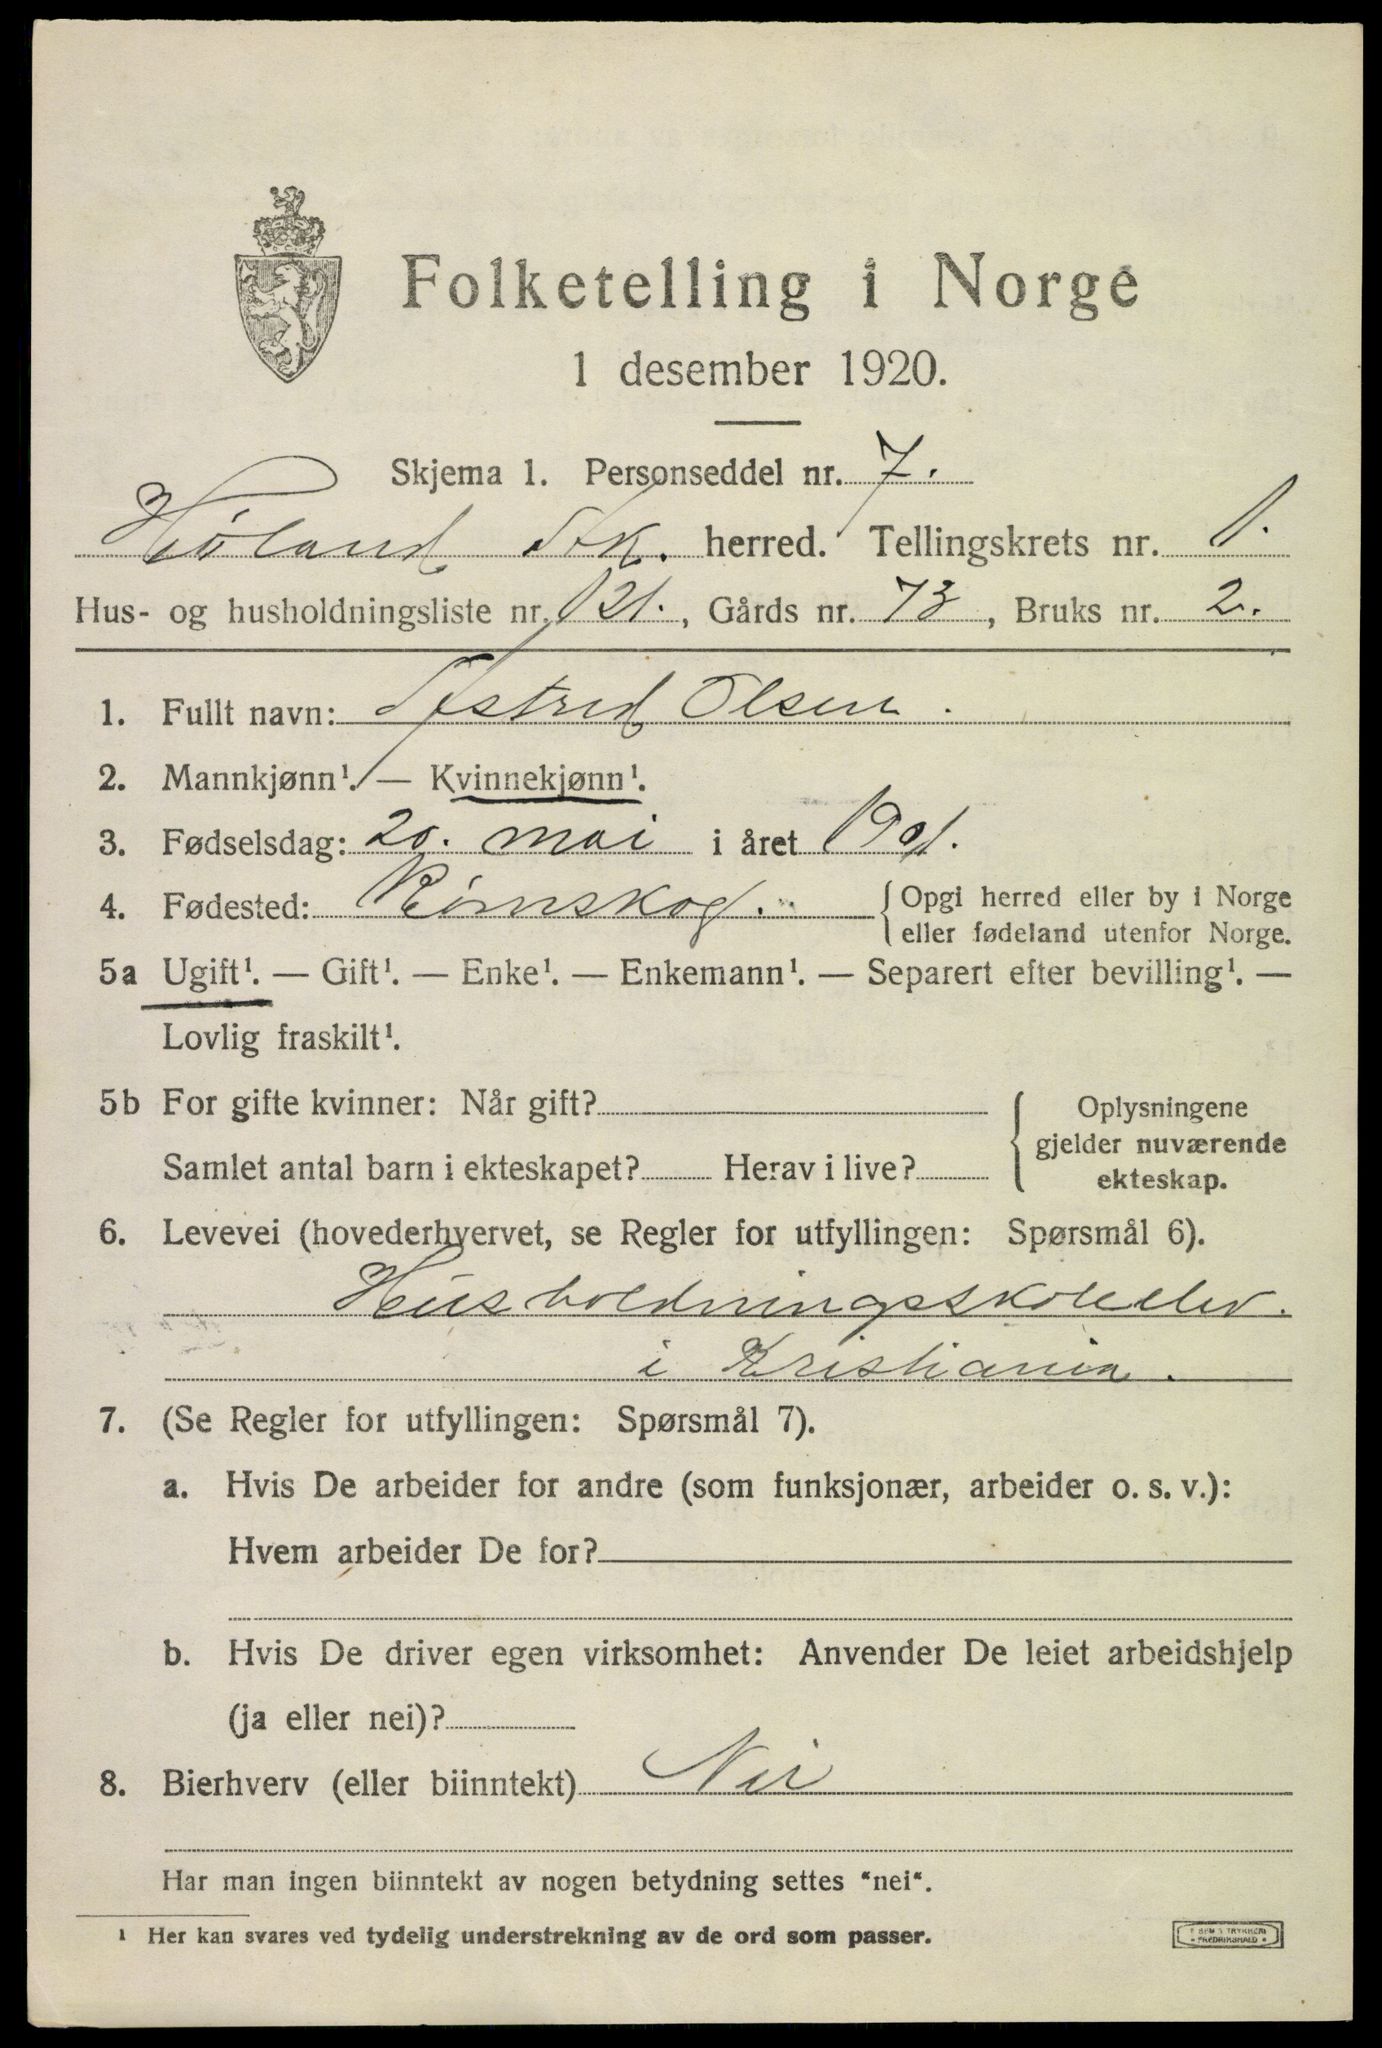 Folketelling i Norge
1 desember 1920.
Skjema 1. Personseddel nr. 7.
Høland herred. Tellingskrets nr. 1.
Hus- og husholdningsliste nr. 121., Gårds nr. 73, Bruks nr. 2.
1. Fullt navn: Astrid Olsen.
2. Mannkjønn¹. — Kvinnekjønn¹.
3. Fødselsdag: 20. mai i året 1901.
4. Fødested: Rømskog. Opgi herred eller by i Norge
eller fødeland utenfor Norge.
5a Ugift¹. — Gift¹. — Enke¹. — Enkemann¹. — Separert efter bevilling¹. —
Lovlig fraskilt¹.
5b For gifte kvinner: Når gift?
Samlet antal barn i ekteskapet? Herav i live?
Oplysningene
gjelder nuværende
ekteskap.
6. Levevei (hovederhvervet, se Regler for utfyllingen: Spørsmål 6).
Husholdningsskoleelev.
i Kristiania.
7. (Se Regler for utfyllingen: Spørsmål 7).
a. Hvis De arbeider for andre (som funksjonær, arbeider o. s. v.):
Hvem arbeider De for?
b. Hvis De driver egen virksomhet: Anvender De leiet arbeidshjelp
(ja eller nei)?
8. Bierhverv (eller biinntekt) Nei
Har man ingen biinntekt av nogen betydning settes "nei".
¹ Her kan svares ved tydelig understrekning av de ord som passer.